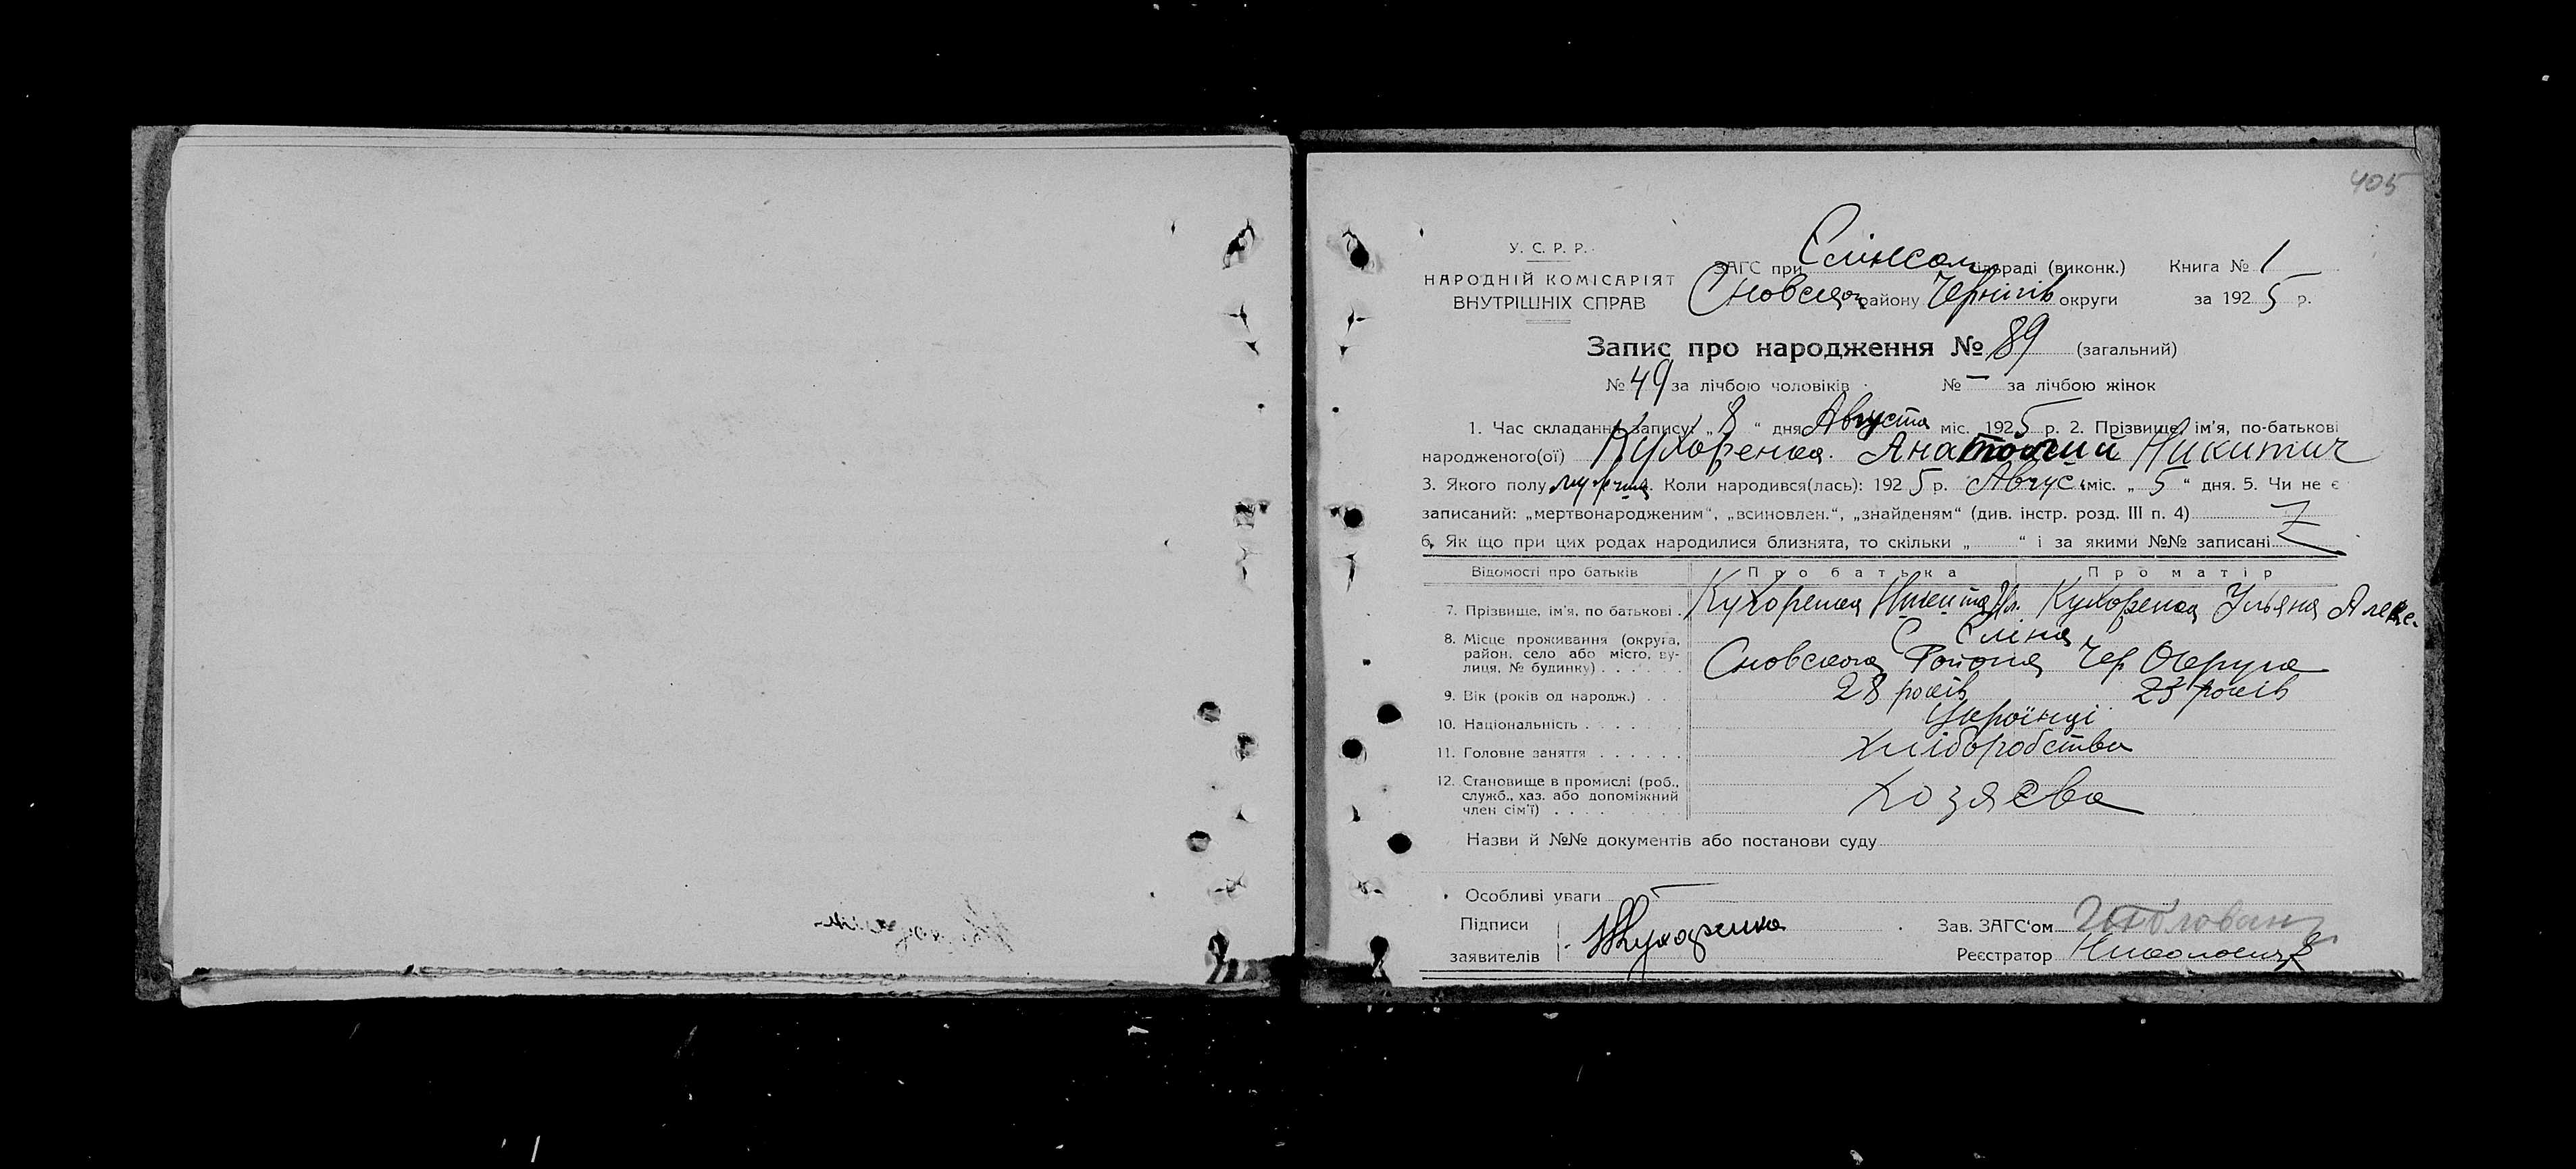 405
У. С. Р. Р.
НАРОДНІЙ КОМІСАРІЯТ
ВНУТРІШНІХ СПРАВ
ЗАГС при Слінском сільраді (виконк.) Книга № 1
Сновскаго району Чернігів округи за 1925 р.
Запис про народження № 89 (загальний)
№ 49 за лічбою чоловіків № — за лічбою жінок
1. Час складання запису: „ 8 “ дня Августа міс. 1925 р. 2. Прізвище, ім'я, по-батькові
народженого(ої) Кухоренка Анатолий Никитич
3. Якого полу 4. Коли народився(лась): 1925 р. Авгус. міс. „ 5 “ дня. 5. Чи не є
записаний: „мертвонародженим“, „всиновлен.“, „знайденям“ (див. інстр. розд. III п. 4)
6. Як що при цих родах народилися близнята, то скільки „ “ і за якими №№ записані
Відомості про батьків Про батька Про матір
7. Прізвище, ім'я, по батькові . Кухоренка Никита Кухоренка Ульяна Алекс.
8. Місце проживання (округа,
район, село або місто, ву-
лиця, № будинку) . . . . . .
С Сліна
Сновскога Района Чер Округа
9. Вік (років од народж.) . . 28 років 23 років
10. Національність . . . . . . Українці
11. Головне заняття . . . . . . хліборобства
12. Становище в промислі (роб.,
служб., хаз. або допоміжний
член сім'ї) . . . . . . . . .
хозяєва
Назви й №№ документів або постанови суду
Особливі уваги —
Підписи
заявителів
Кухаренко
Зав. ЗАГС'ом
Реєстратор